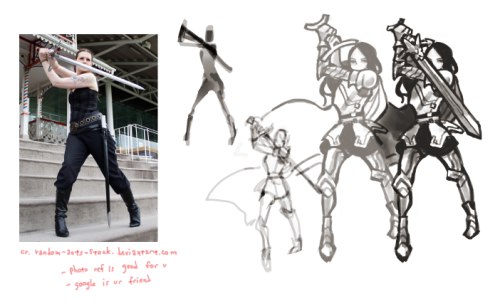 cr. random-acts-stock.deviantart.com
- photo ref is good for u
- google is ur friend